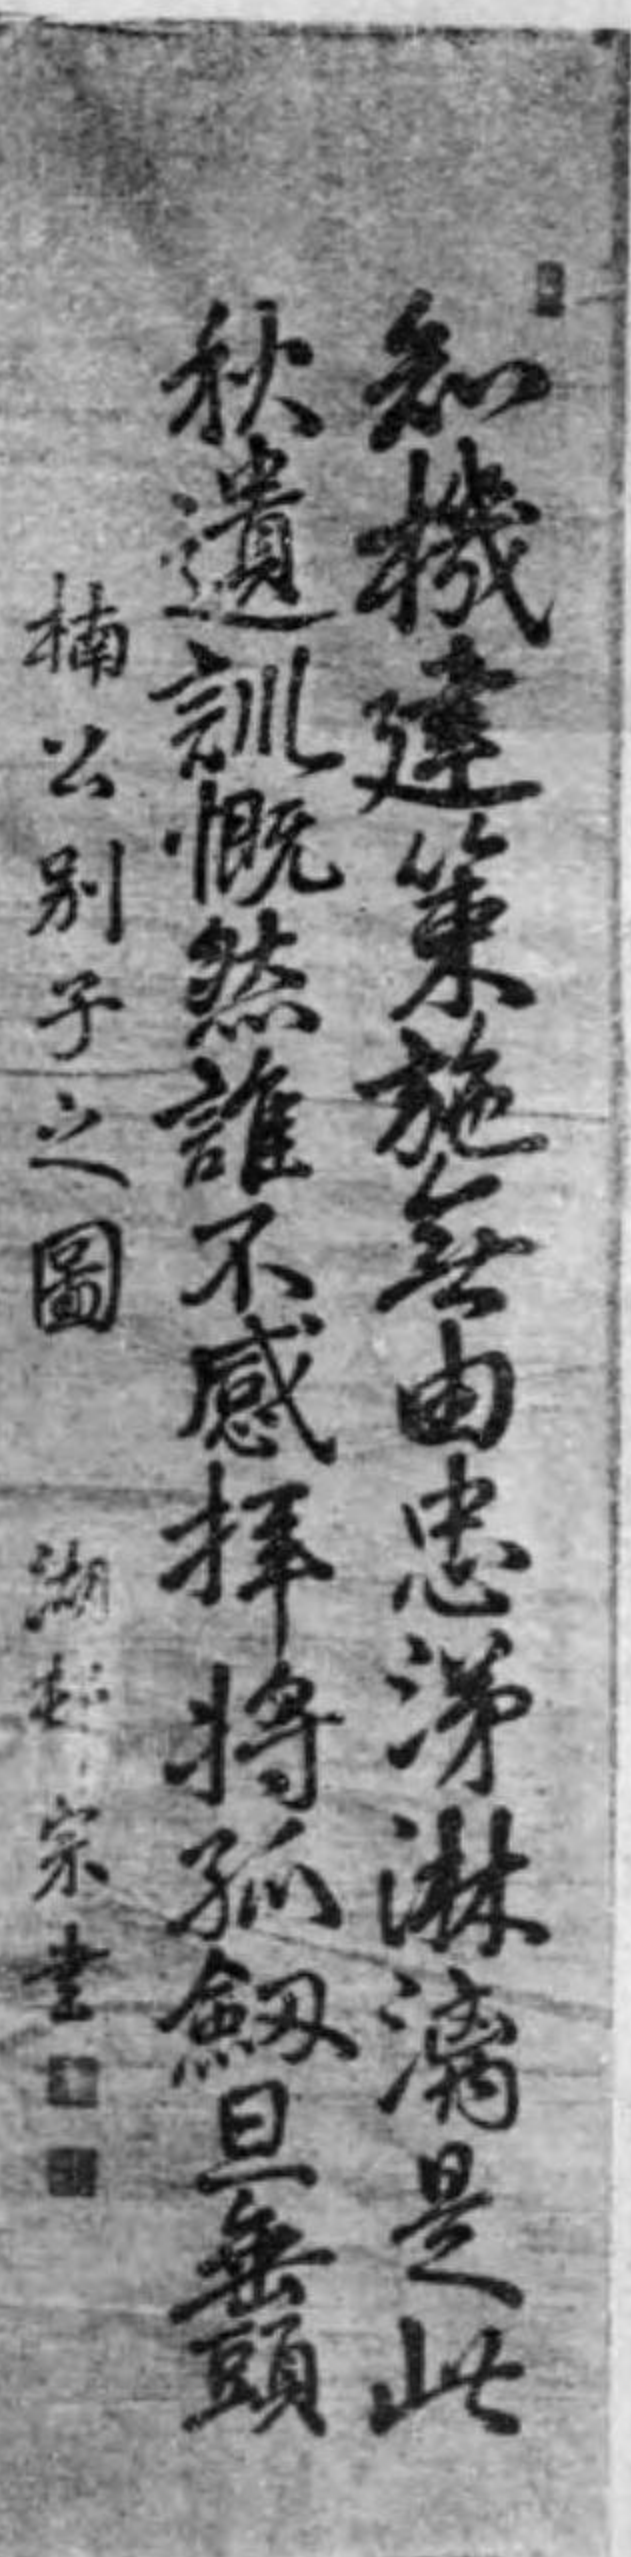 知機建策施無由忠涕淋漓是此
秋遺訓慨然誰不感拝将孤劔且垂頭
楠公別子之圖
湖 宗書